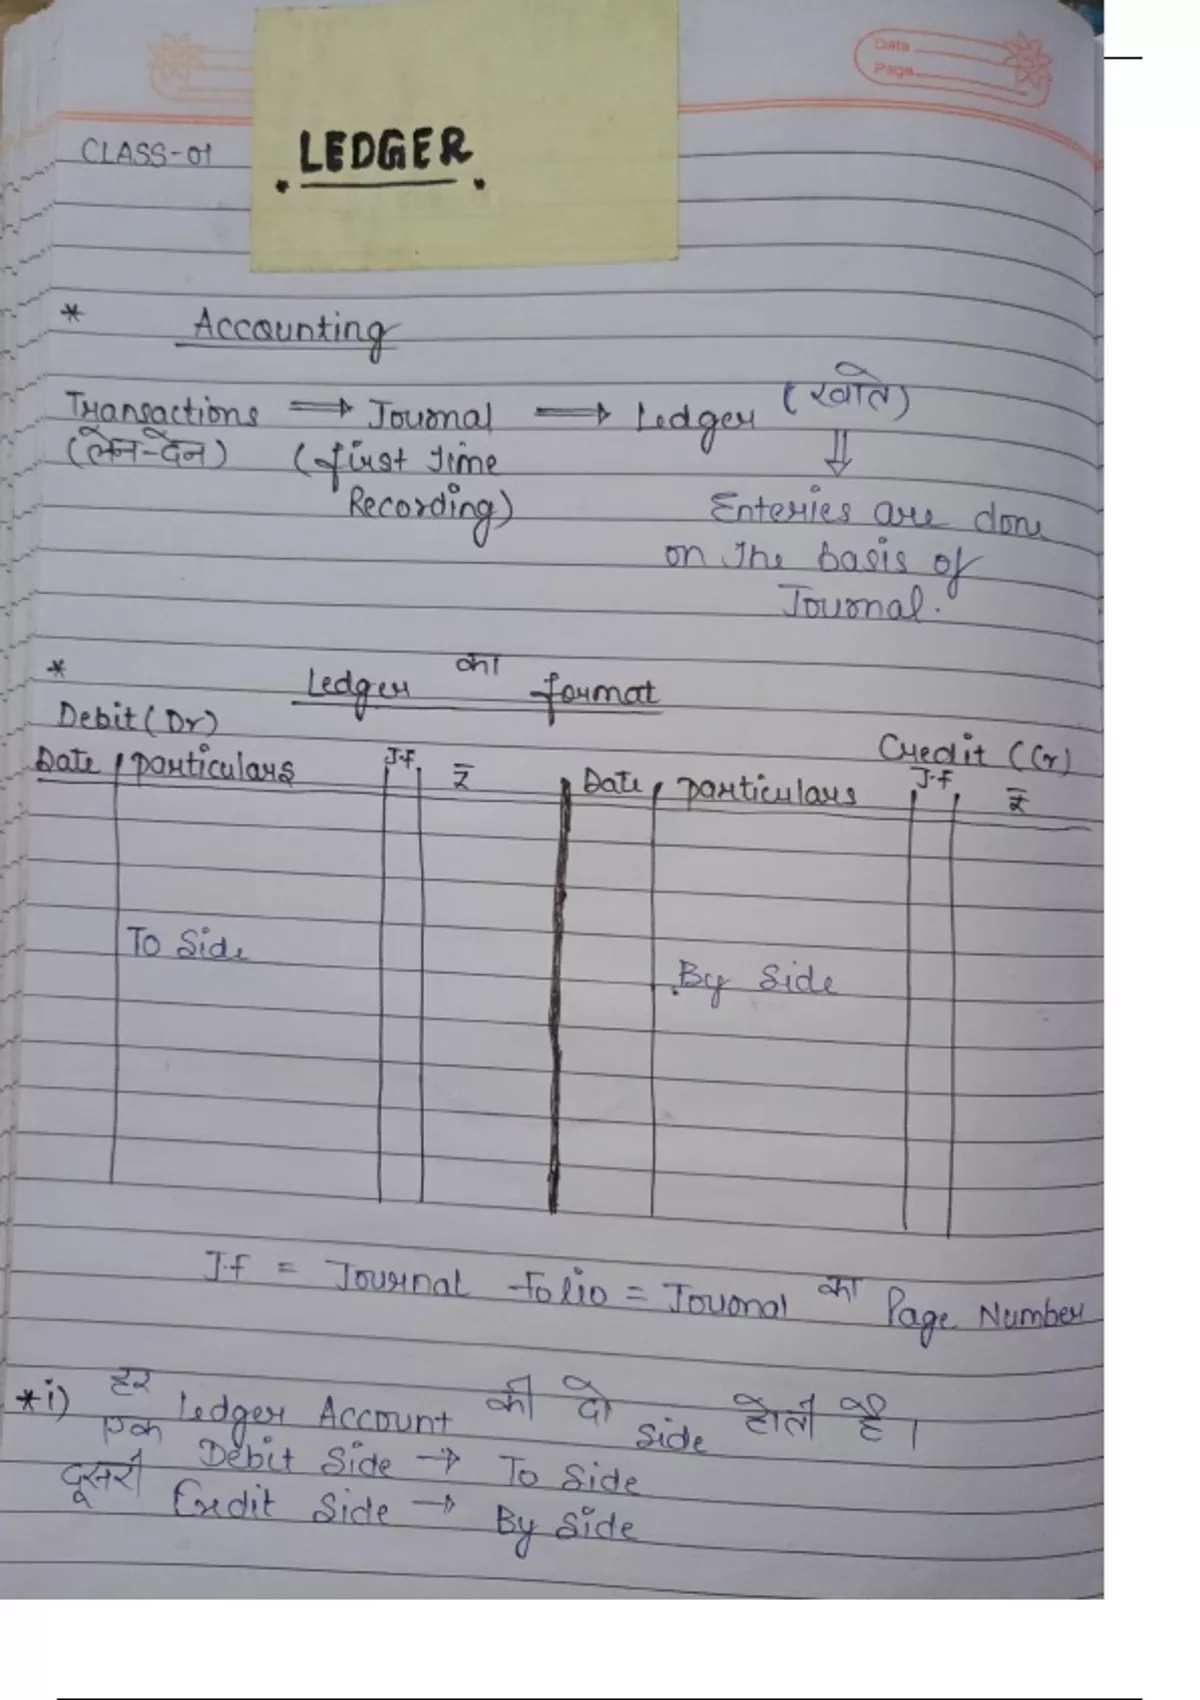 Data
Page
CLASS-01
LEDGER
* Accounting
Transactions ⇒ Journal ⇒ Ledger (खाते)
(लेन-देन) (first time ⇓
Recording) Enteries are done
on the basis of
Journal.
* Ledger का format
Debit (Dr) Credit (Cr)
Date particulars J.f. ₹ Date particulars J.f ₹
To Side
By Side
J.f = Journal folio = Journal का Page Number
* i) हर Ledger Account की दो side होती है।
एक Debit Side → To Side
दूसरी Credit Side → By Side